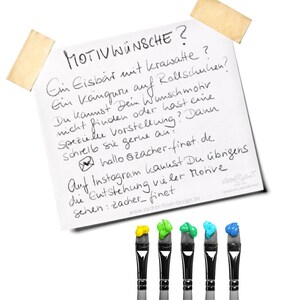 MOTIVWÜNSCHE?
Ein Eisbär mit Krawatte?
Ein Känguru auf Rollschuhen?
Du kannst Dein Wunschmotiv
nicht finden oder hast eine
spezielle Vorstellung? Dann
schreib sie gerne an:
hallo@zacher-finet.de
Auf Instagram kannst Du übrigens
die Entstehung vieler Motive
sehen: zacher_finet